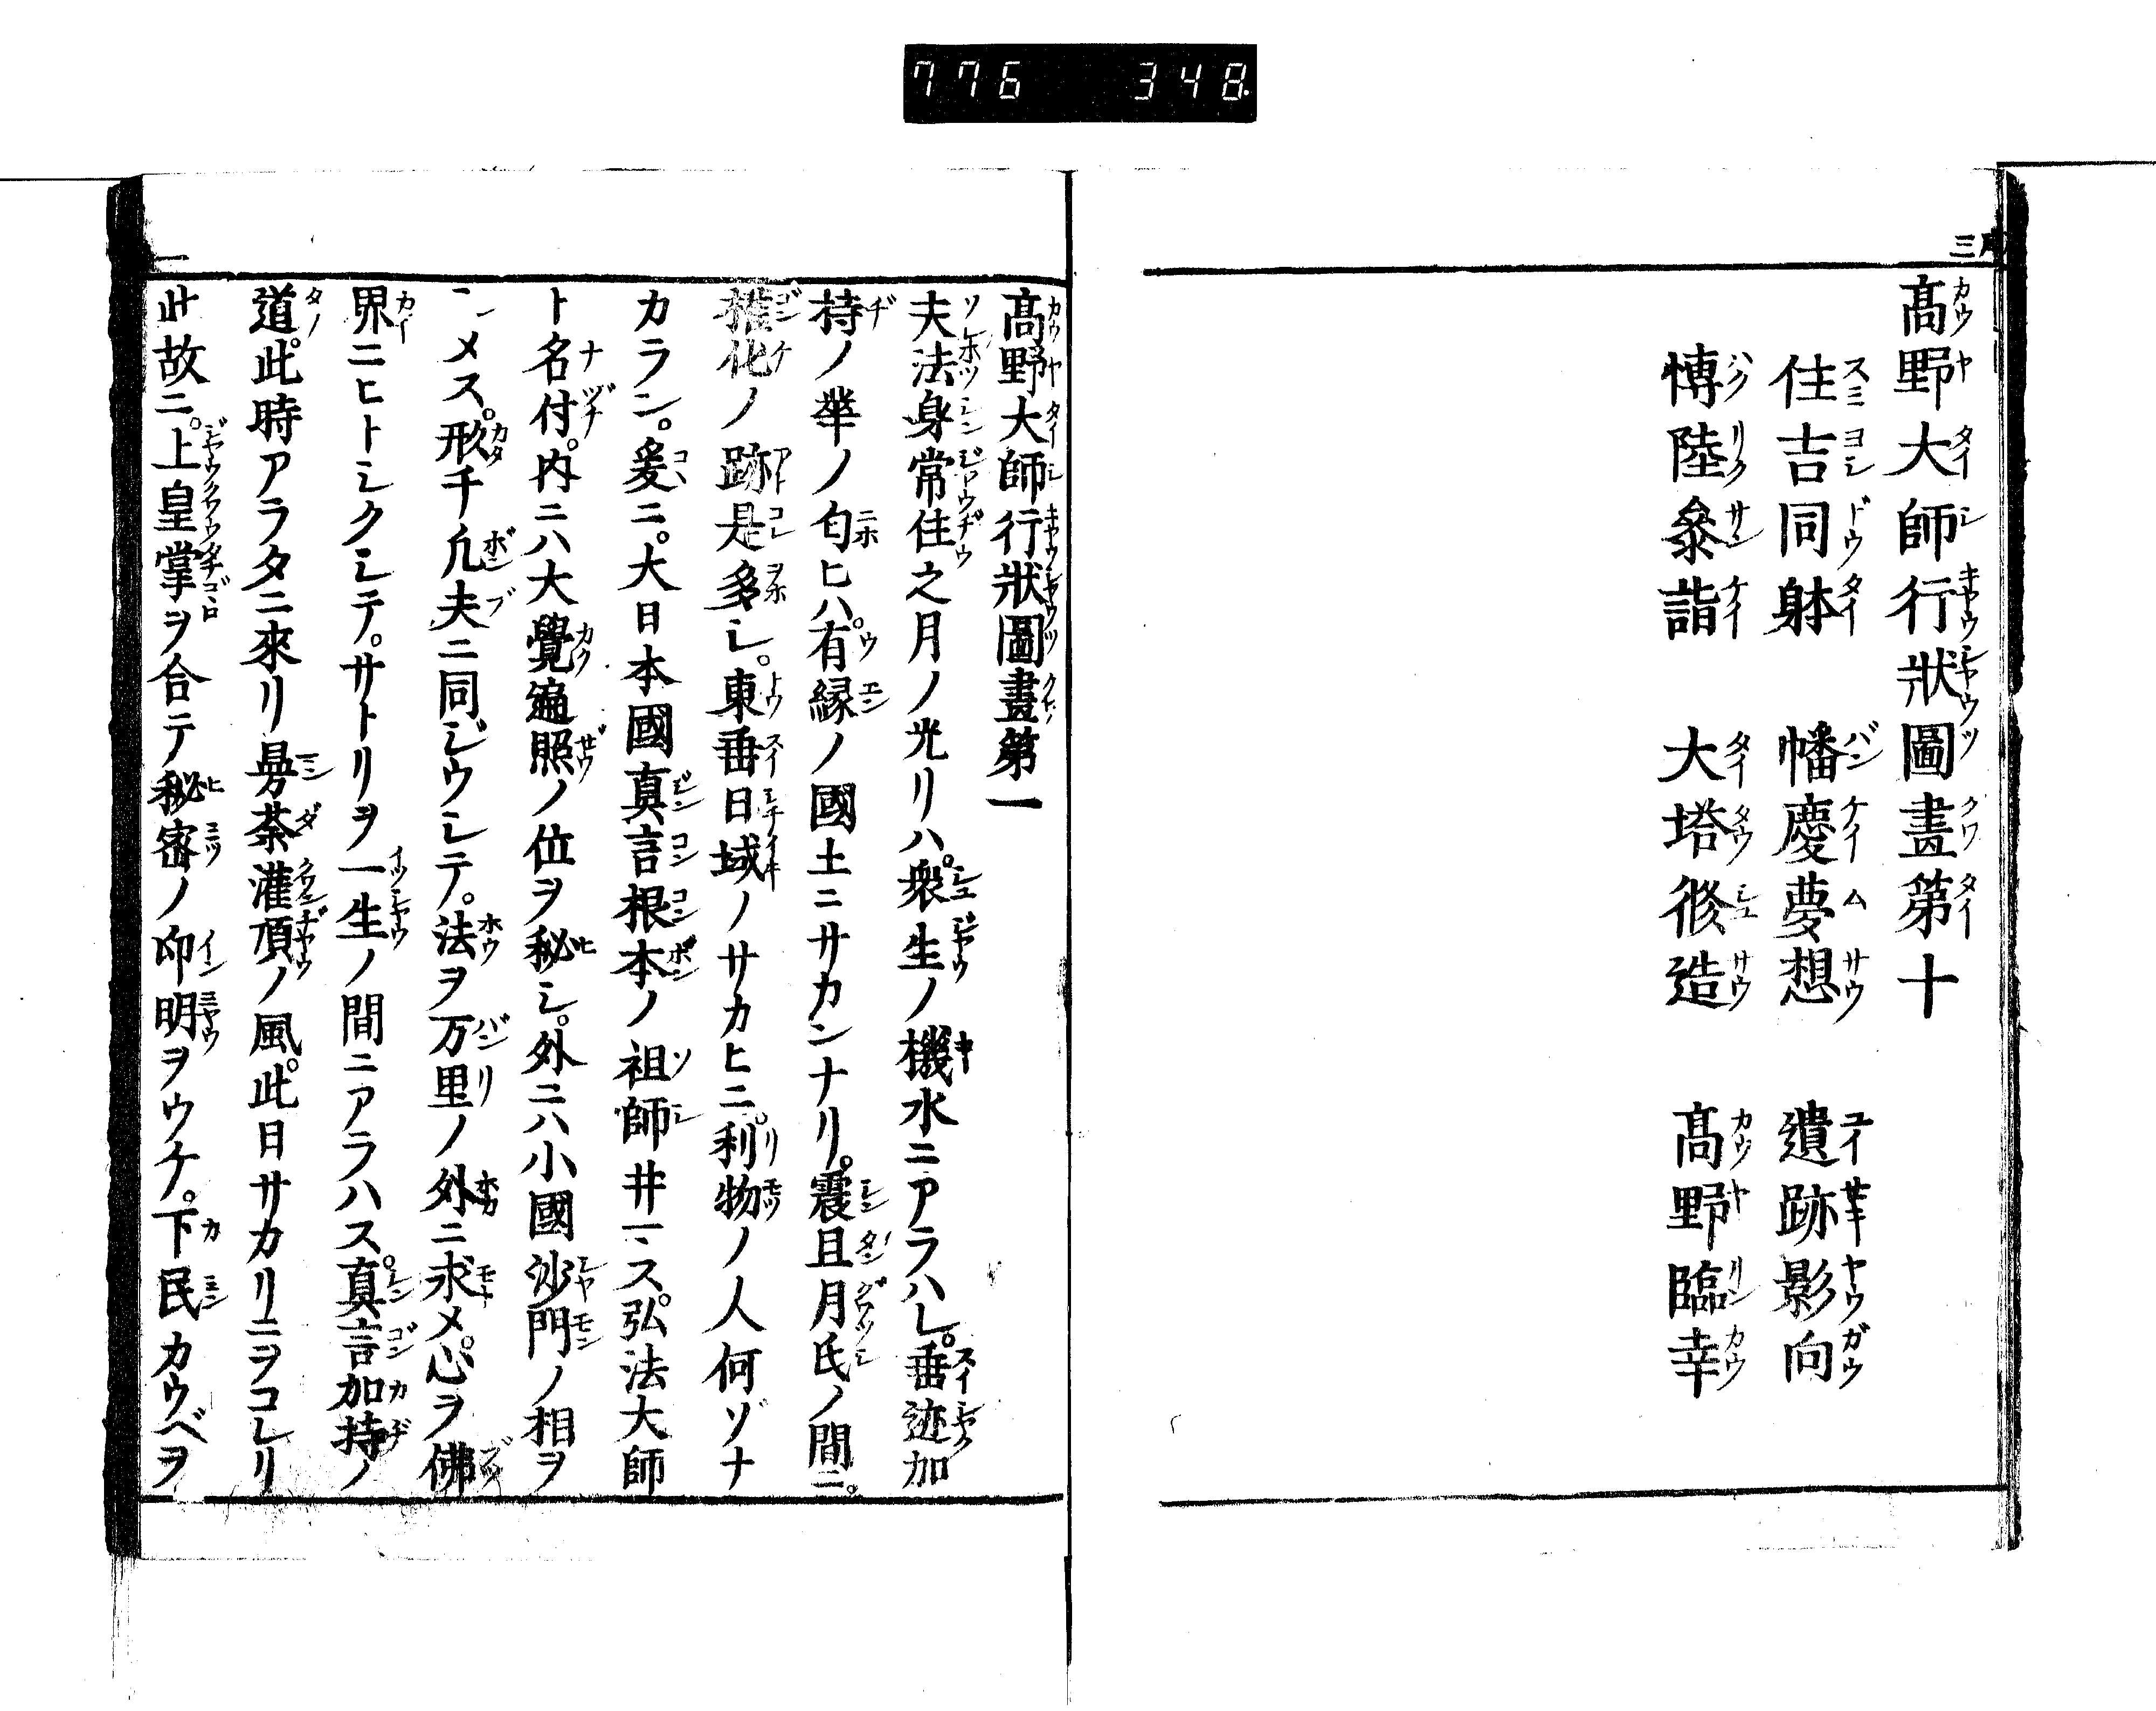 776 348
三
髙野大師行狀圖畫第十
住吉同躰 幡慶夢想 遺跡影向
博陸叅詣 大塔修造 髙野臨幸
髙野大師行狀圖畫第一
夫法身常住之月ノ光リハ。衆生ノ機水ニアラハレ。垂迹加
持ノ華ノ匂ヒハ。有縁ノ國土ニサカンナリ。震旦月氏ノ間ニ。
權化ノ跡是多シ。東垂日域ノサカヒニ。利物ノ人何ゾナ
カラン。爰ニ。大日本國真言根本ノ祖師井マス。弘法大師
ト名付。内ニハ大覺遍照ノ位ヲ秘シ。外ニハ小國沙門ノ相ヲ
シメス。形千凢夫ニ同ジウシテ。法ヲ万里ノ外ニ求メ。心ヲ佛
界ニヒトシクシテ。サトリヲ一生ノ間ニアラハス。真言加持ノ
道。此時アラタニ來リ曼荼灌頂ノ風。此日サカリニヲコレリ
此故ニ。上皇掌ヲ合テ秘密ノ印明ヲウケ。下民カウベヲ
一